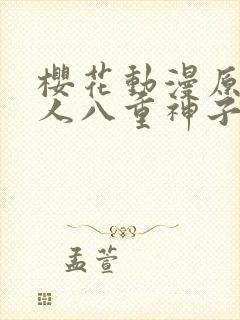 櫻花動漫原
人八重神子
孟萱